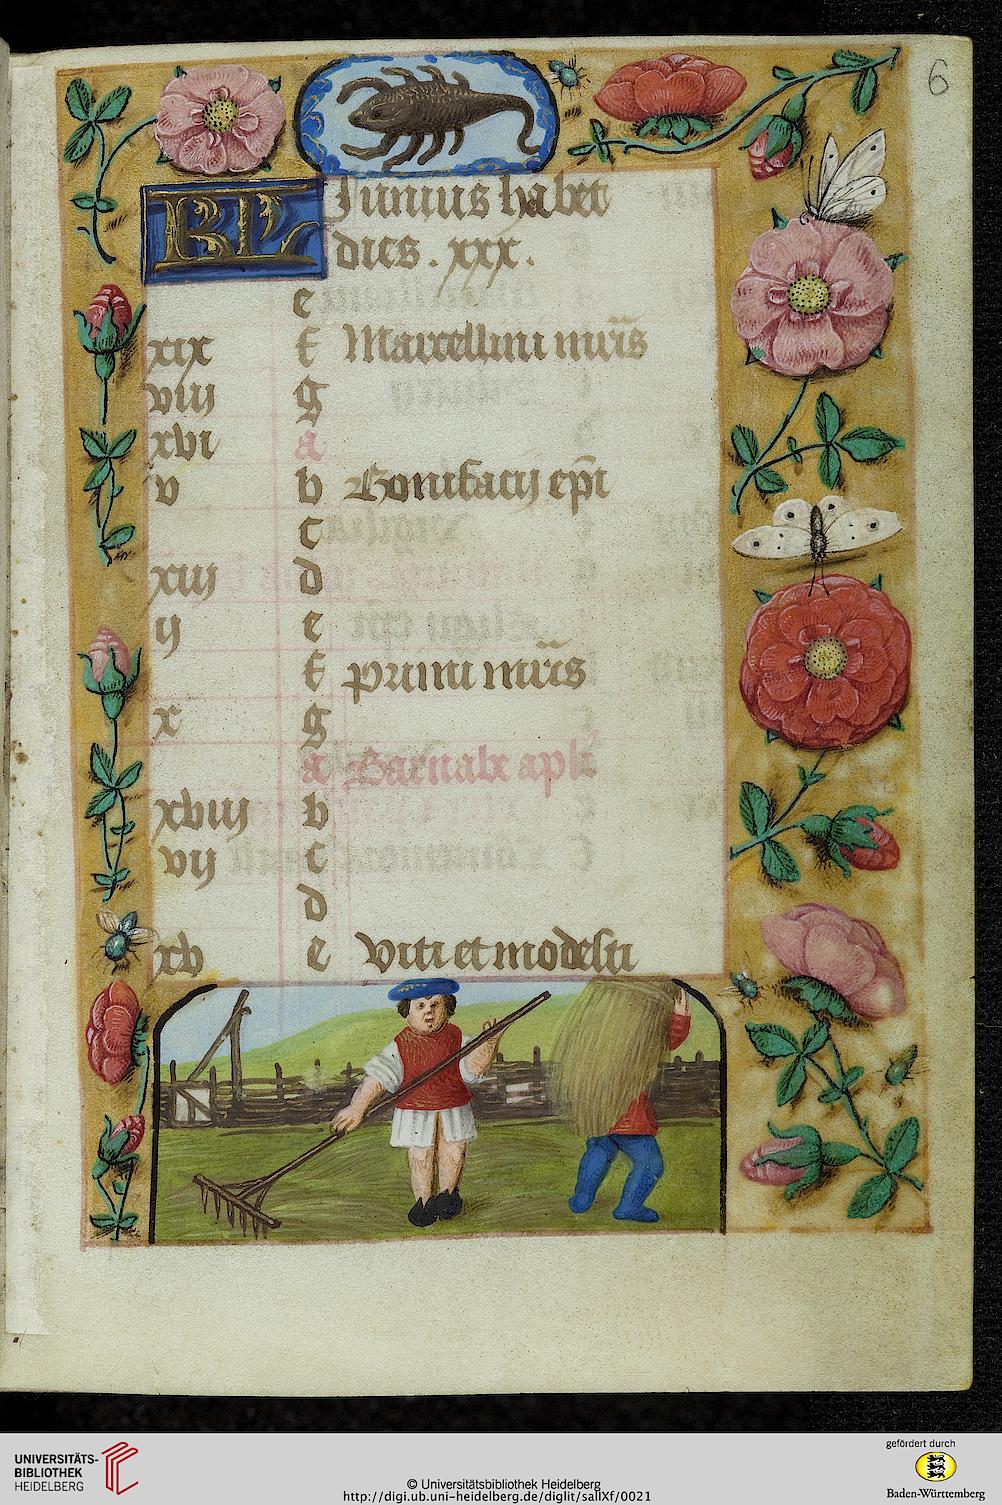 6
KL Junius habet
dies . xxx .
e
xix f Marcellini mr̄is
viij g
xvi a
v b Bonifacij ep̄i
c
xiij d
ij e
f primi mr̄is
x g
a Barnabe apl̄i
xviij b
vij c
d
xv e Viti et modesti
UNIVERSITÄTS-
BIBLIOTHEK
HEIDELBERG
© Universitätsbibliothek Heidelberg
http://digi.ub.uni-heidelberg.de/diglit/salIXf/0021
gefördert durch
Baden-Württemberg